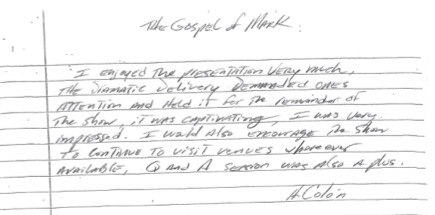 The Gospel of Mark.
I enjoyed the presentation very much,
the dramatic delivery demanded ones
attention and held it for the remainder of
the show, it was captivating, I was very
impressed. I would also encourage the show
to continue to visit venues wherever
available, Q and A session was also a plus.
H. Colón